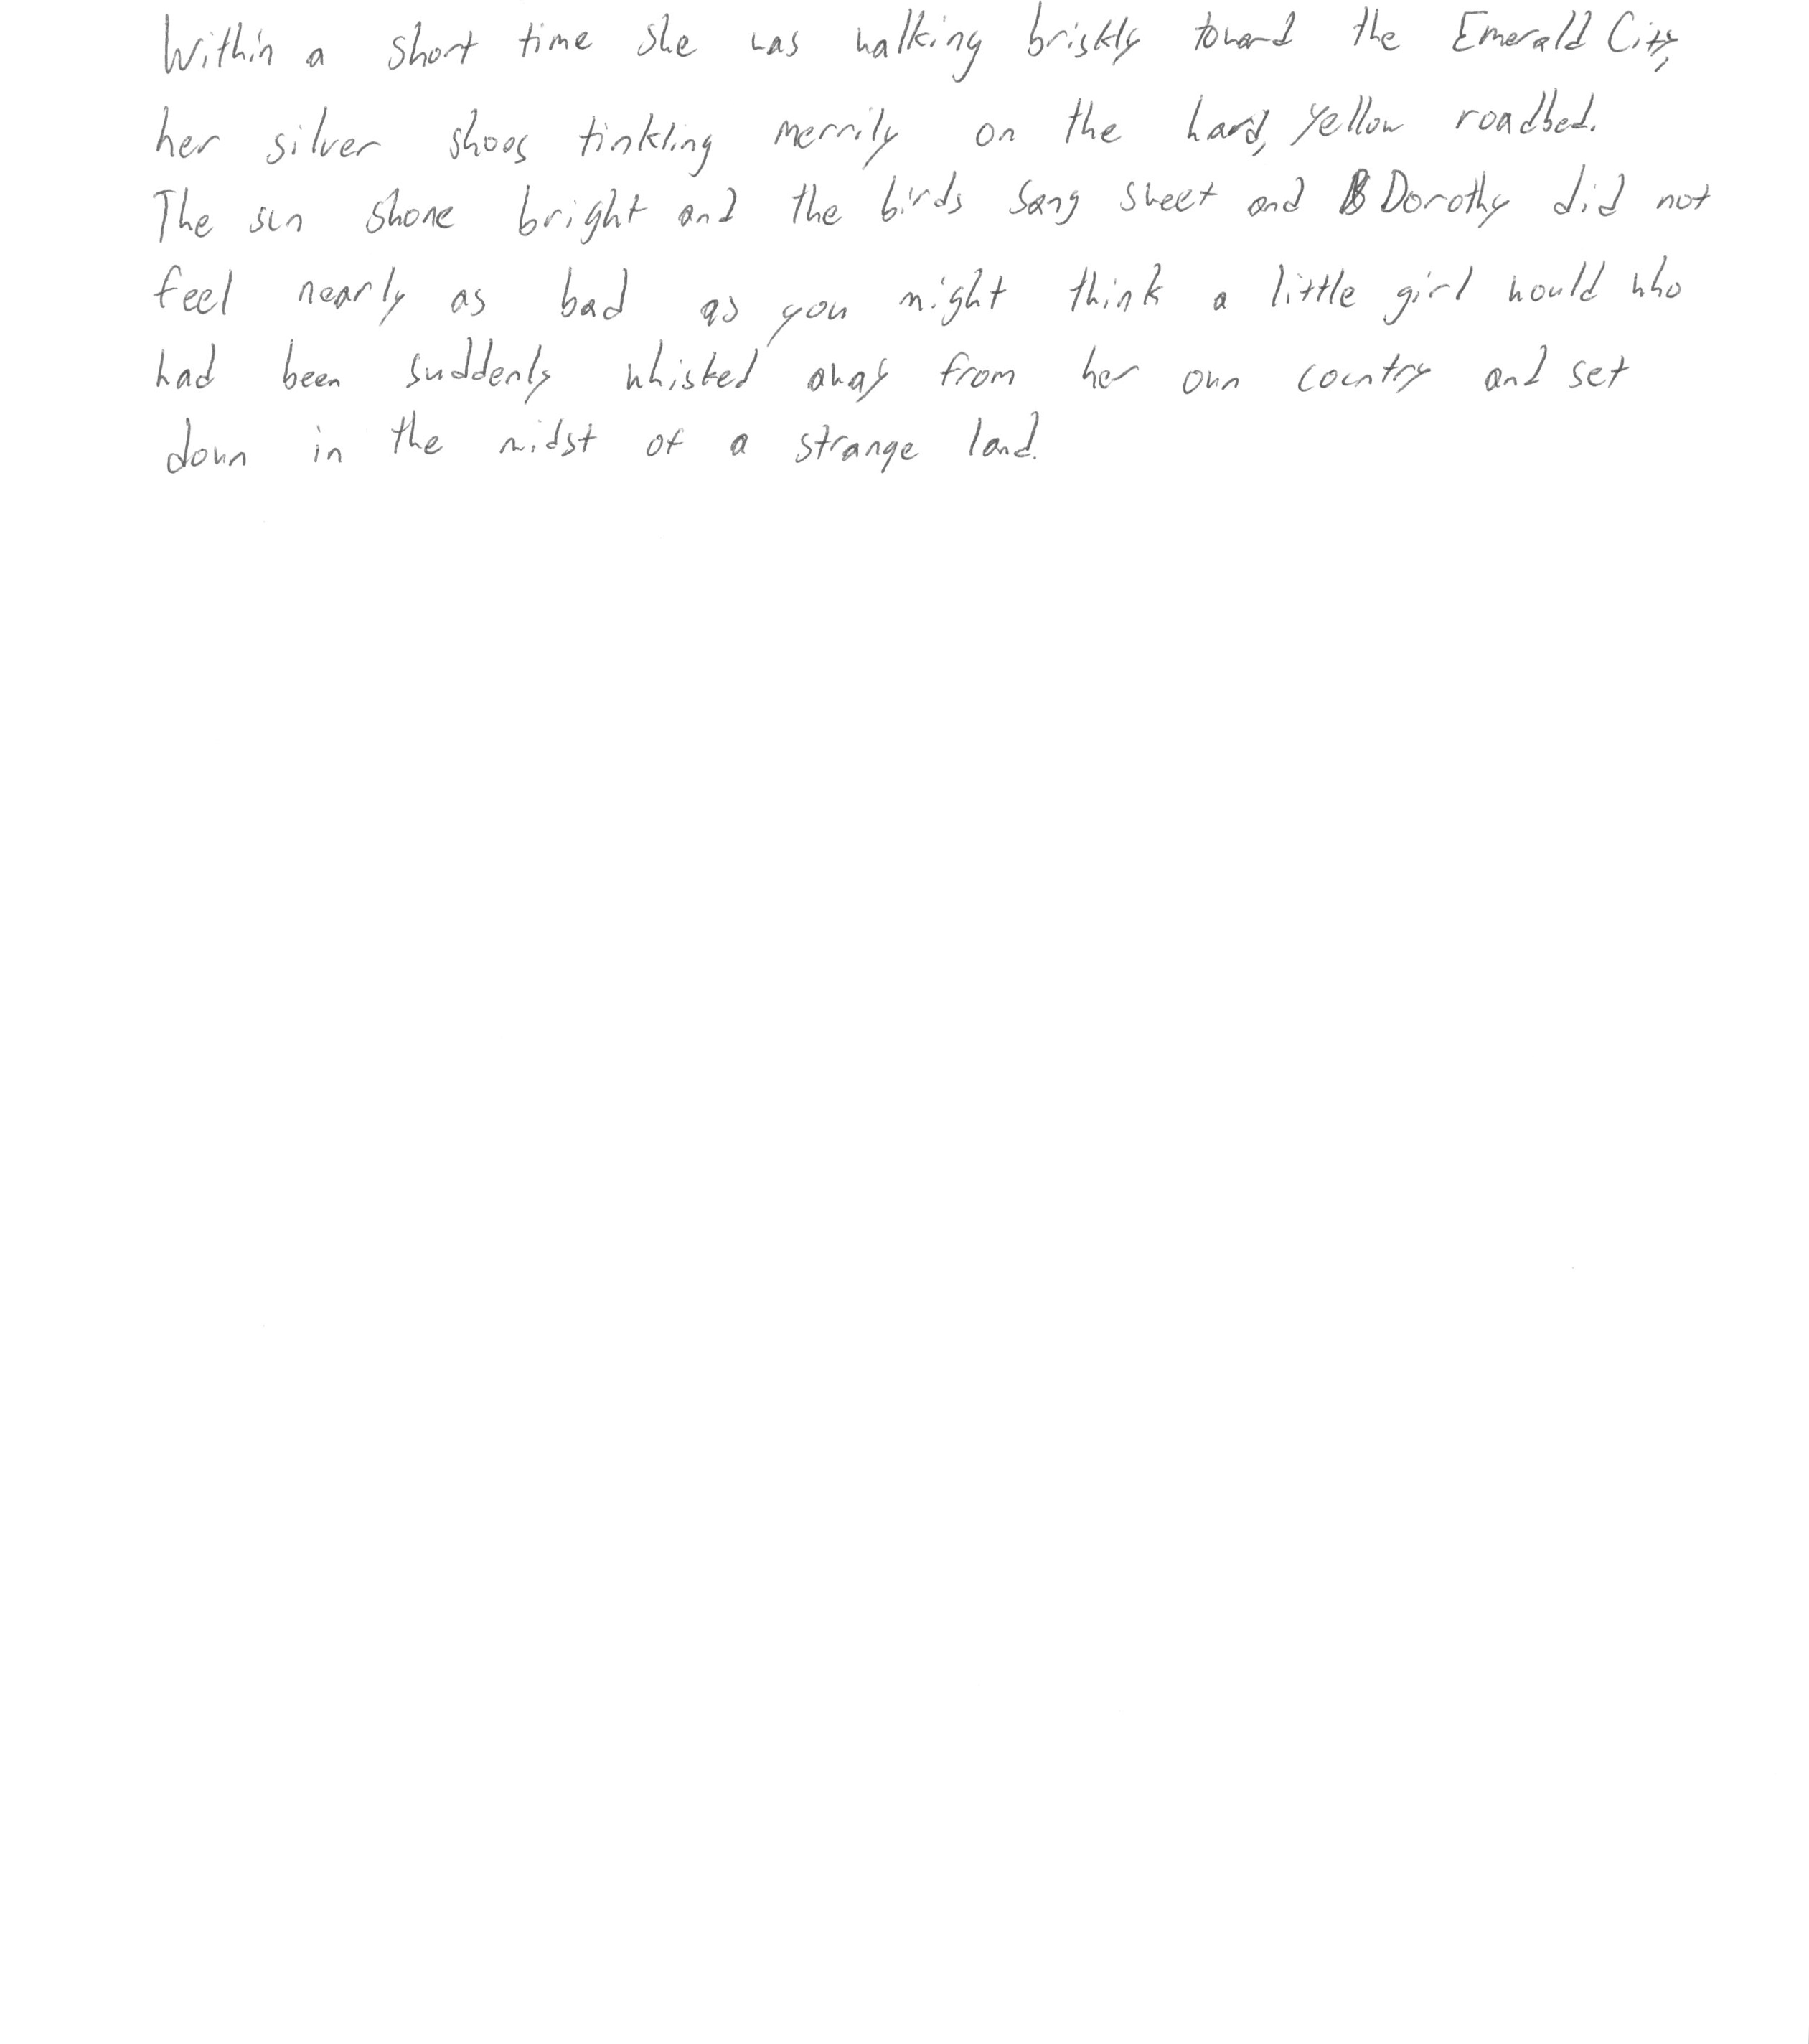 Within a short time she was walking briskly toward the Emerald City,
her silver shoes tinkling merrily on the hard, yellow roadbed.
The sun shone bright and the birds sang sweet and Dorothy did not
feel nearly as bad as you might think a little girl would who
had been suddenly whisked away from her own country and set
down in the midst of a strange land.